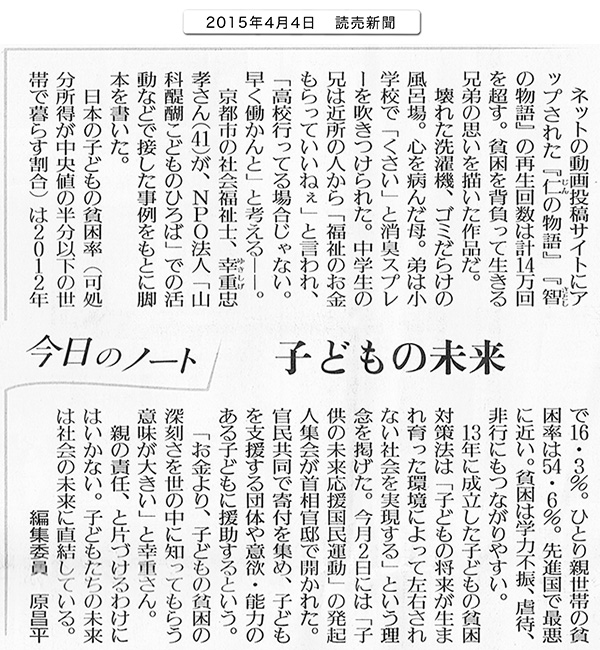 2015年4月4日　読売新聞
ネットの動画投稿サイトにア
ップされた『仁の物語』『智
の物語』の再生回数は計14万回
を超す。貧困を背負って生きる
兄弟の思いを描いた作品だ。
壊れた洗濯機、ゴミだらけの
風呂場。心を病んだ母。弟は小
学校で「くさい」と消臭スプレ
ーを吹きつけられた。中学生の
兄は近所の人から「福祉のお金
もらっていいねぇ」と言われ、
「高校行ってる場合じゃない。
早く働かんと」と考える――。
京都市の社会福祉士、幸重忠
孝さん(41)が、NPO法人「山
科醍醐こどものひろば」での活
動などで接した事例をもとに脚
本を書いた。
日本の子どもの貧困率（可処
分所得が中央値の半分以下の世
帯で暮らす割合）は2012年
今日のノート
子どもの未来
で16・3%。ひとり親世帯の貧
困率は54・6%。先進国で最悪
に近い。貧困は学力不振、虐待、
非行にもつながりやすい。
13年に成立した子どもの貧困
対策法は「子どもの将来が生ま
れ育った環境によって左右され
ない社会を実現する」という理
念を掲げた。今月2日には「子
供の未来応援国民運動」の発起
人集会が首相官邸で開かれた。
官民共同で寄付を集め、子ども
を支援する団体や意欲・能力の
ある子どもに援助するという。
「お金より、子どもの貧困の
深刻さを世の中に知ってもらう
意味が大きい」と幸重さん。
親の責任、と片づけるわけに
はいかない。子どもたちの未来
は社会の未来に直結している。
編集委員　原昌平